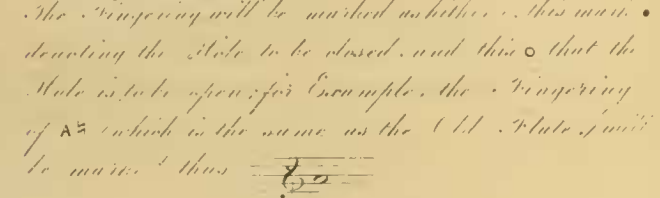 The Fingering will be marked as hither . this mark ●
denoting the Hole to be closed. and this o that the
Hole is to be open; for Example. the Fingering
of A♮ (which is the same as the Old Flute) will
be mark'd thus